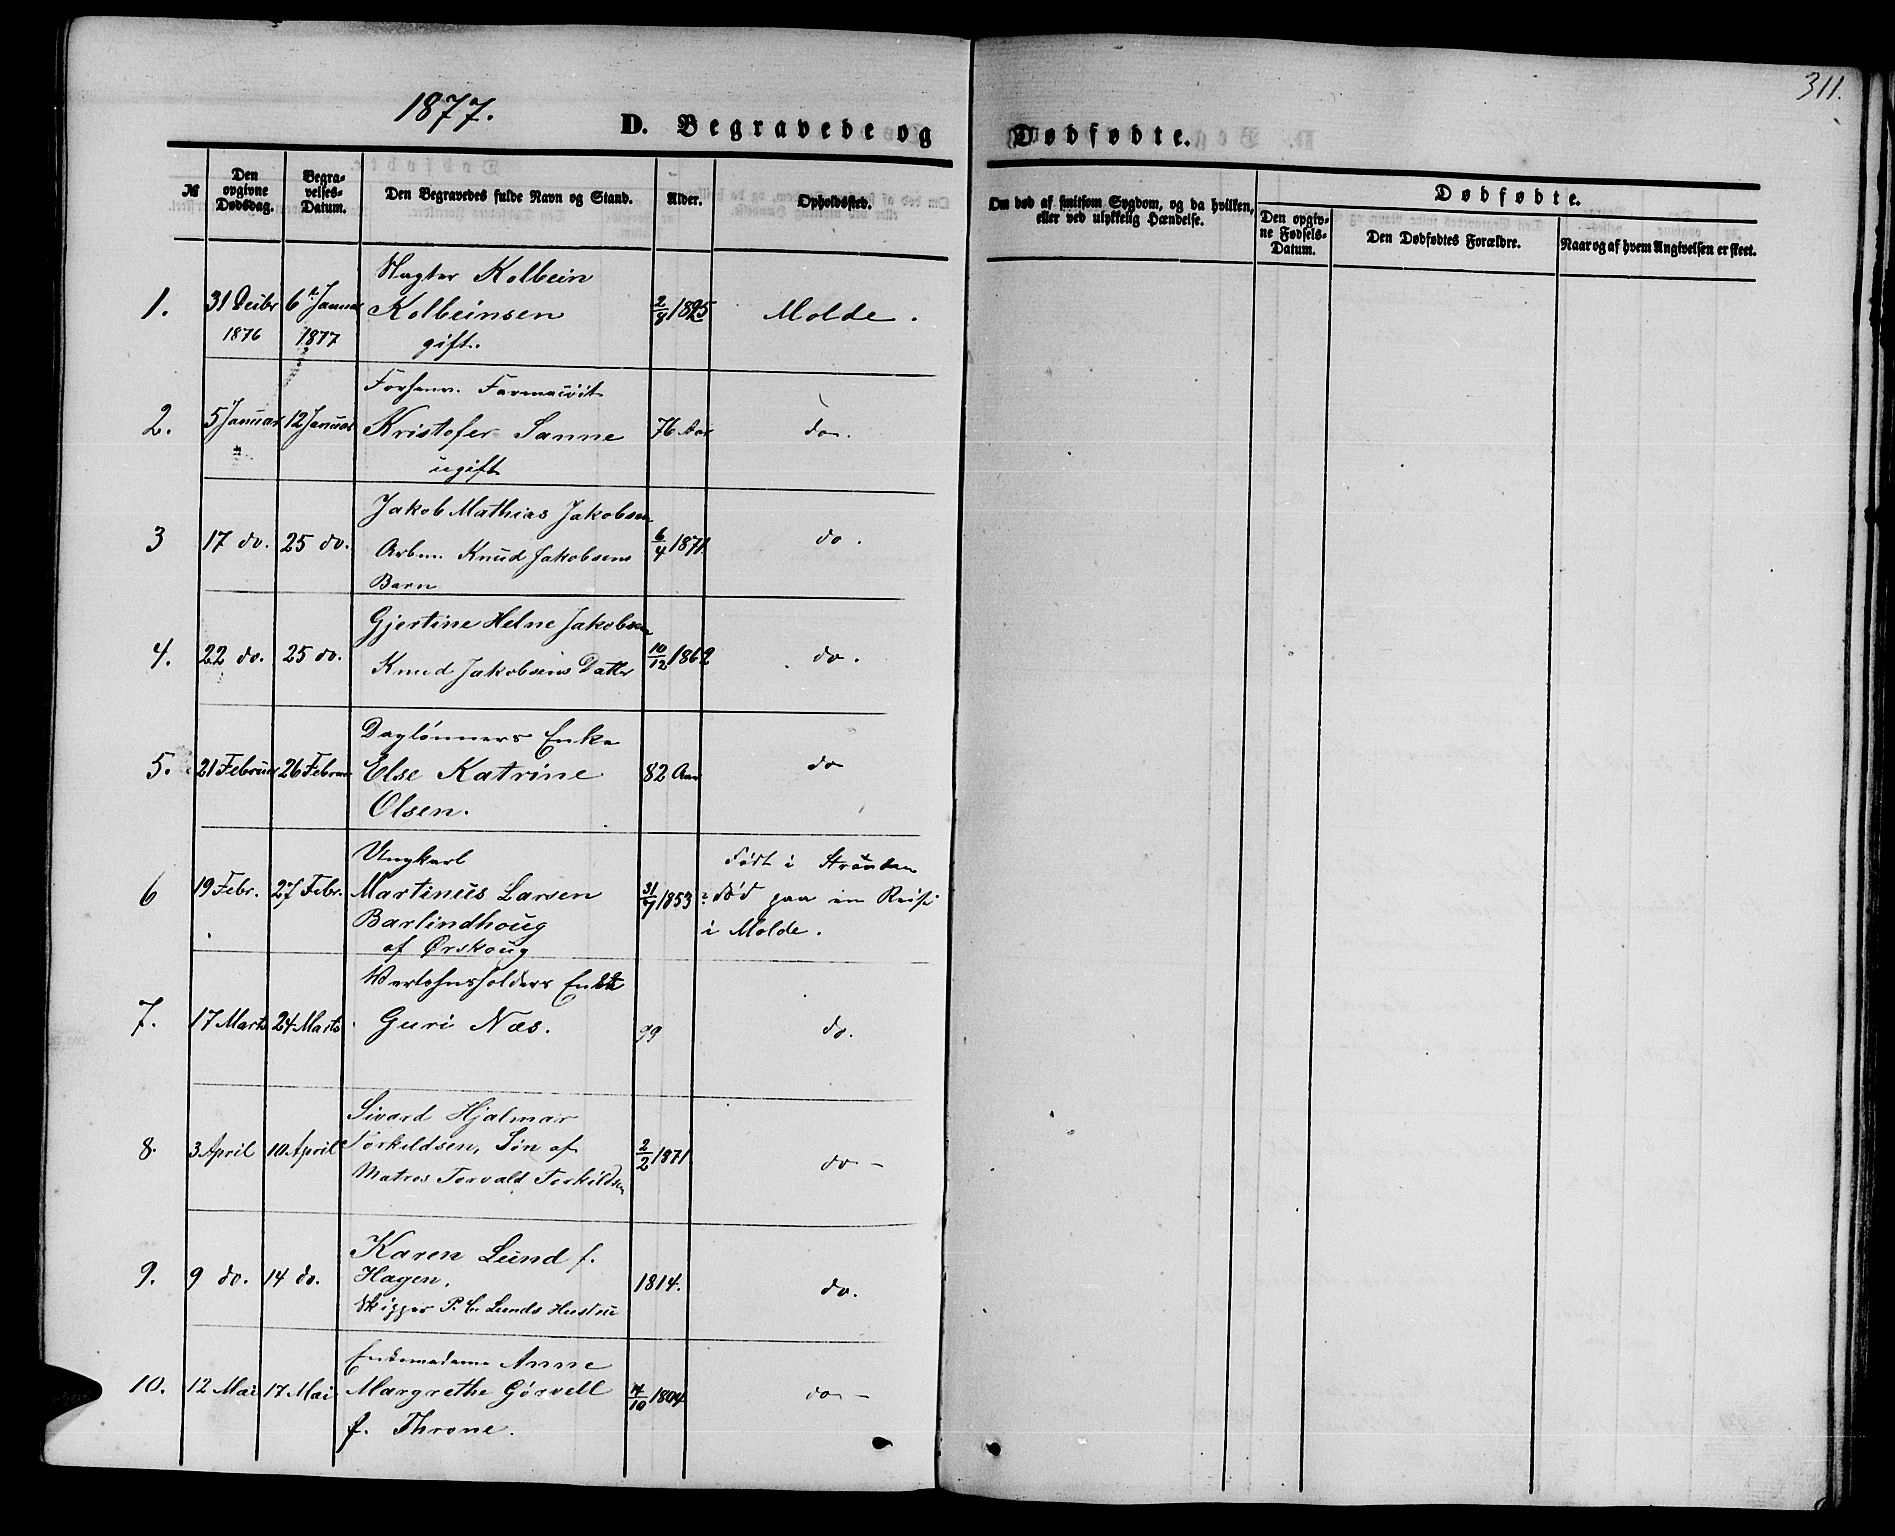 311.
1877.
D. Begravede og Dødfødte.
№
Den opgivne Dødsdag.
Begravelses-Datum.
Den Begravedes fulde Navn og Stand.
Alder.
Opholdssted.
Om død af smitsom Sygdom, og da hvilken, eller ved ulykkelig Hændelse.
Dødfødte.
Den opgivne Fødsels-Datum.
Den Dødfødtes Forældre.
Naar og af hvem Angivelsen er skeet.
Vægter Kolbein
1. 31 Decbr 6te Januar Kolbeinsen 2/8 1825 Molde.
1876 1877 gift.
Forhenv. Farmaceut
2. 5 Januar 12 Januar Kristofer Sanne 76 Aar do.
ugift
Jakob Mathias Jakobsen
3 17 do. 25 do. Arbm. Knud Jakobsens 6/4 1871. do.
Barn
Gjertine Helne Jakobsen
4. 22 do. 25 do. Knud Jakobsens Datter 10/12 1862 do.
Daglönners Enke
5. 21 Februar 26 Februar Else Katrine 82 Aar do
Olsen.
Ungkarl Født i Stranden
6 19 Febr. 27 Febr. Martinus Larsen 1853 død paa en Reise
Barlindhoug i Molde.
af Ørskoug
Enke
7. 17 Marts 24 Marts Guri Næs. 99 do.
Sivard Hjalmar
8. 3 April 10 April Torkildsen, Søn af 2/2 1871 do -
Matros Torvald Torkildsen
Karen Lund f.
9. 9 do. 14 do. Hagen, 1814. do.
Skipper P. C. Lunds Hustru
Enkemadame Anne
10. 12 Mai 17 Mai Margrethe Görvell 14/10 1804 do -
f. Throne.